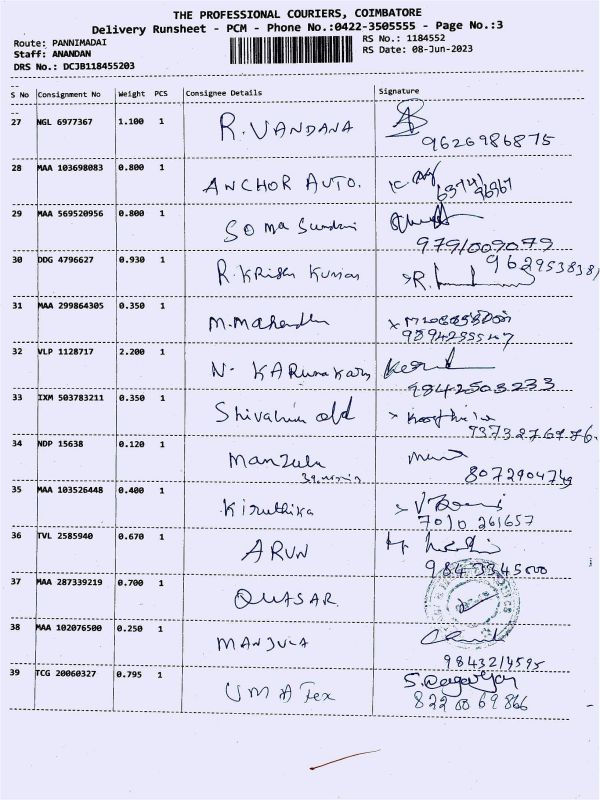 THE PROFESSIONAL COURIERS, COIMBATORE
Delivery Runsheet - PCM - Phone No.:0422-3505555 - Page No.:3
Route: PANNIMADAI
Staff: ANANDAN
DRS No.: DCJB118455203
RS No.: 1184552
RS Date: 08-Jun-2023
S No Consignment No Weight PCS Consignee Details Signature
27 NGL 6977367 1.100 1 R. VANDANA
9626986875
28 MAA 103698083 0.800 1 ANCHOR AUTO.
29 MAA 569520956 0.800 1 Soma Sundari
9791009079
30 DDG 4796627 0.930 1 R. Krish Kumar R.
9629538381
31 MAA 299864305 0.350 1 M. Mahendra
32 VLP 1128717 2.200 1 N. KARUnakaran
9842503233
33 IXM 503783211 0.350 1
34 NDP 15638 0.120 1 Manzula
8072904749
35 MAA 103526448 0.400 1 Kiruthika
7010 261657
36 TVL 2585940 0.670 1 ARUN
9843345000
37 MAA 287339219 0.700 1 QUASAR.
38 MAA 102076500 0.250 1 MANJULA
9843214595
39 TCG 20060327 0.795 1 UMA Tex
8220069866